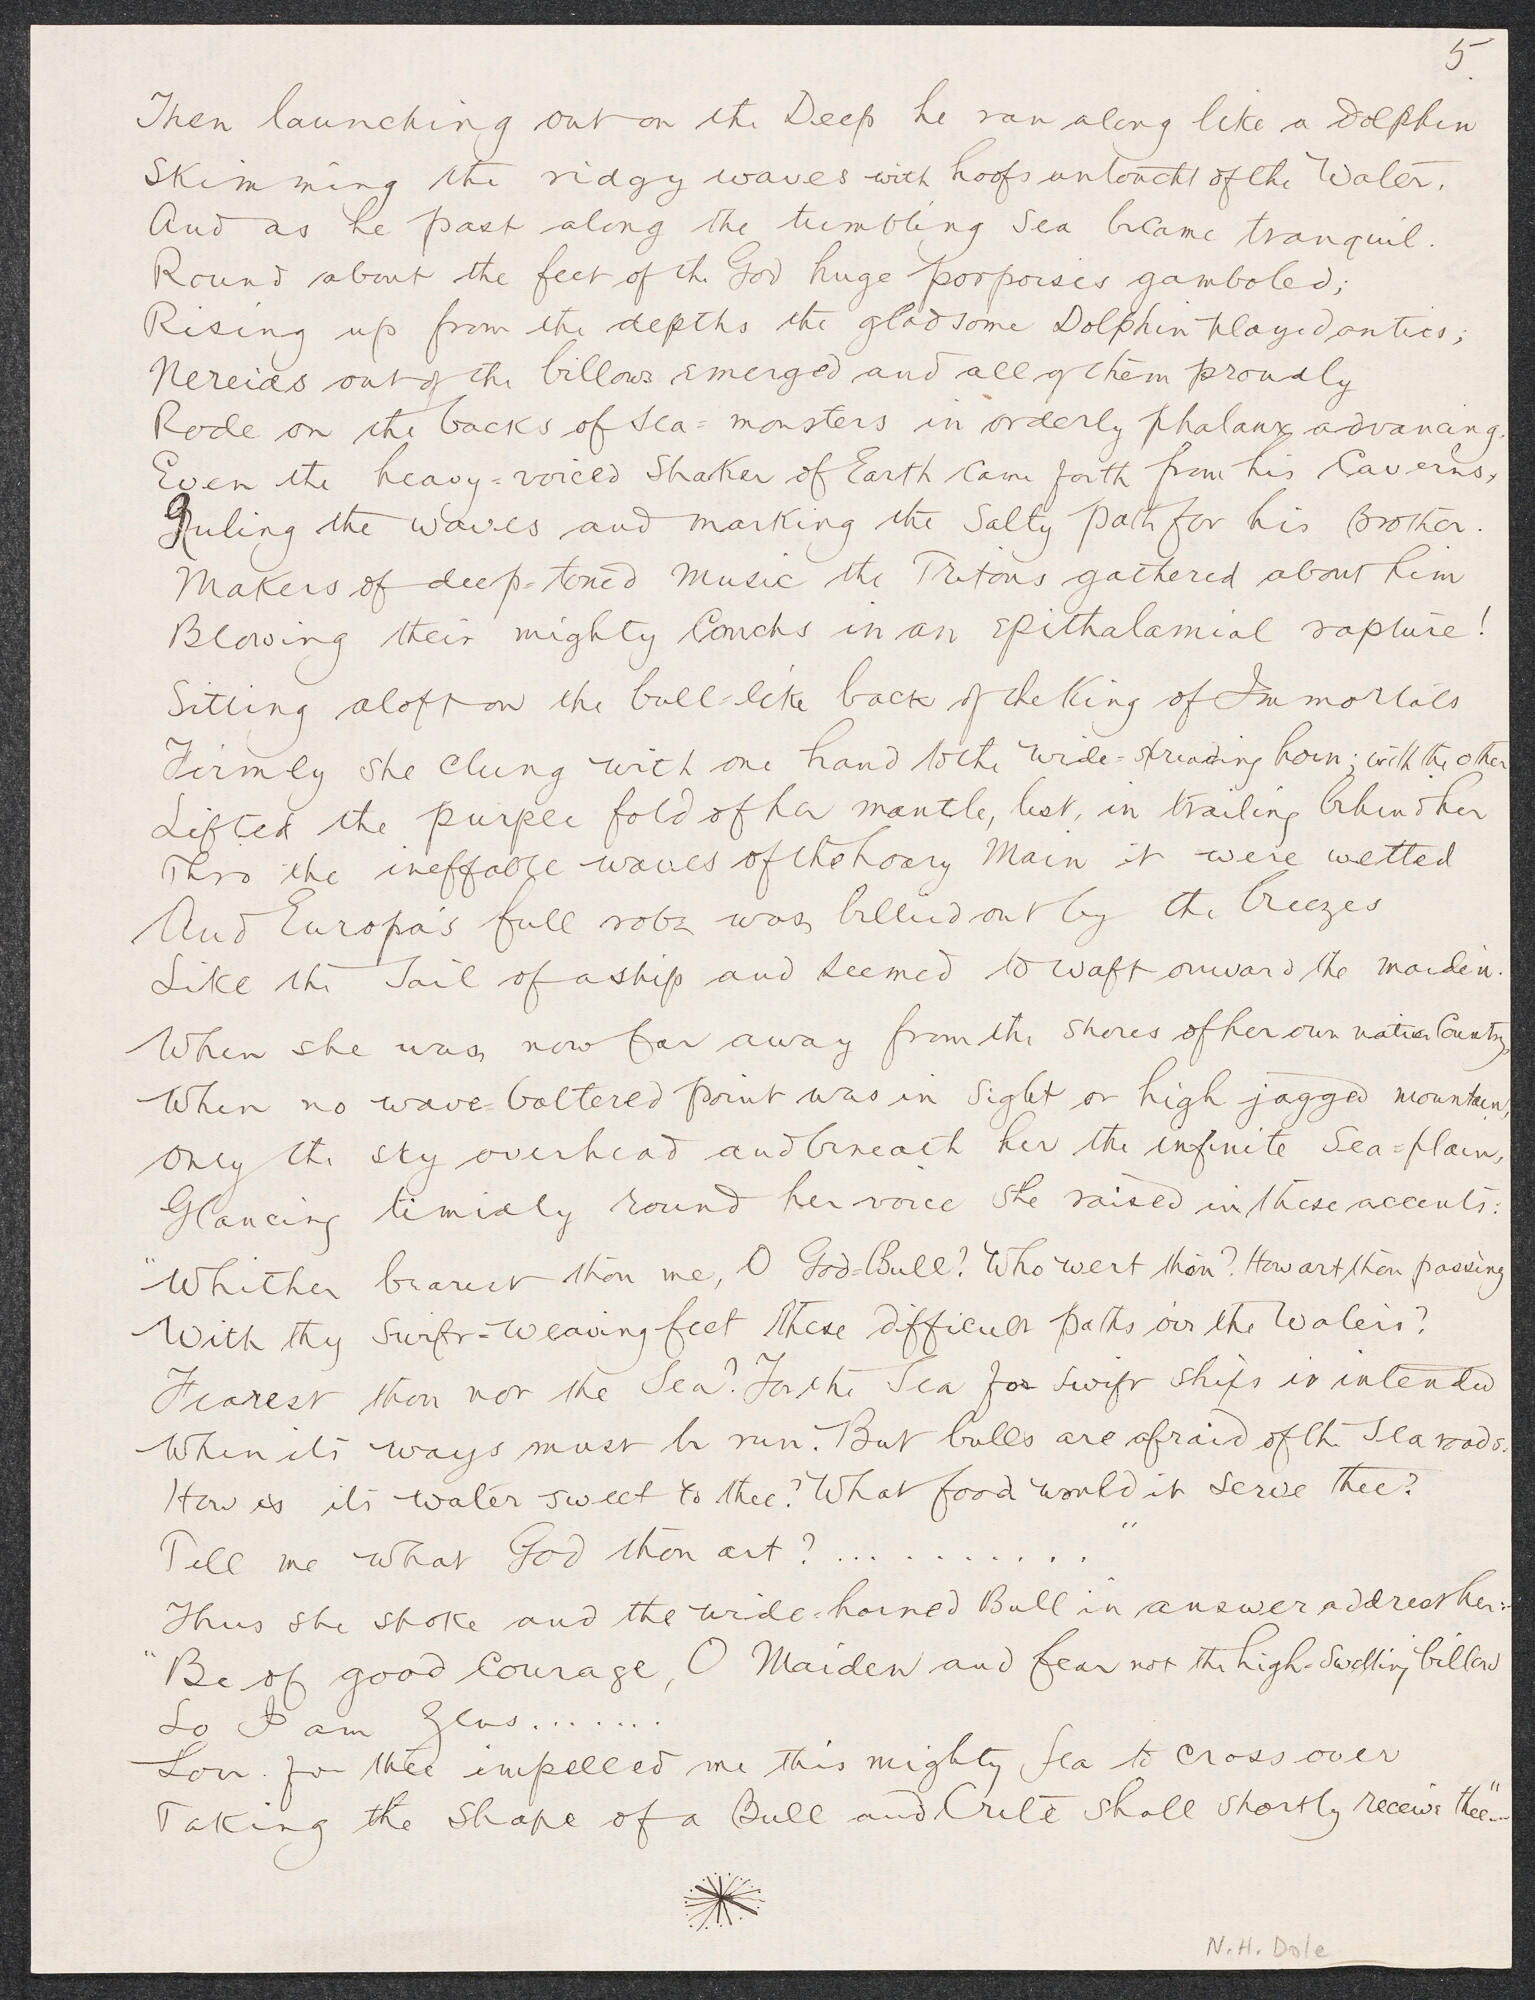 5.
Then launching out on the Deep he ran along like a Dolphin
Skimming the ridgy waves with hoofs untoucht of the Water.
And as he past along the tumbling Sea became tranquil.
Round about the feet of the God huge porpoises gamboled;
Rising up from the depths the gladsome Dolphin played antics;
Nereids out of the billows emerged and all of them proudly
Rode on the backs of sea-monsters in orderly phalanx advancing.
Even the heavy-voiced Shaker of Earth came forth from his Caverns,
Ruling the waves and marking the Salty path for his Brother.
Makers of deep-toned Music the Tritons gathered about him
Blowing their mighty Conchs in an epithalamial rapture!
Sitting aloft on the bull-like back of the King of Immortals
Firmly she clung with one hand to the wide-spreading horn; with the other
Lifted the purple fold of her mantle, lest, in trailing behind her
Thro the ineffable waves of the hoary Main it were wetted
And Europa's full robe was bellied out by the breezes
Like the Sail of a ship and seemed to waft onward the maiden.
When she was now far away from the shores of her own native Country,
When no wave-battered point was in sight or high jagged mountain,
Only the sky overhead and beneath her the infinite Sea-plain,
Glancing timidly round her voice she raised in these accents:
"Whither bearest thou me, O God-Bull? Who wert thou? How art thou passing
With thy swift-weaving feet these difficult paths o'er the Waters?
Fearest thou not the Sea? For the Sea for swift ships is intended
When its ways must be run. But bulls are afraid of the Sea roads.
How is its water sweet to thee? What food would it serve thee?
Tell me what God thou art? .......... "
Thus she spoke and the wide-horned Bull in answer addrest her:
"Be of good Courage, O Maiden and fear not the high-swelling billow
Lo I am Zeus.......
Love for thee impelled me this mighty Sea to cross over
Taking the shape of a Bull and Crete shall shortly receive thee"...
N.H. Dole